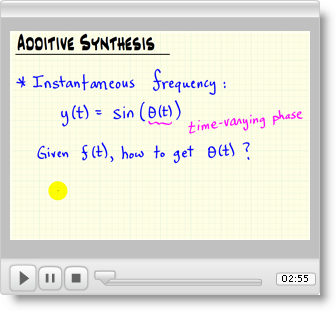 ADDITIVE SYNTHESIS
* Instantaneous frequency:
y(t) = sin(θ(t))
time-varying phase
Given f(t), how to get θ(t)?
02:55